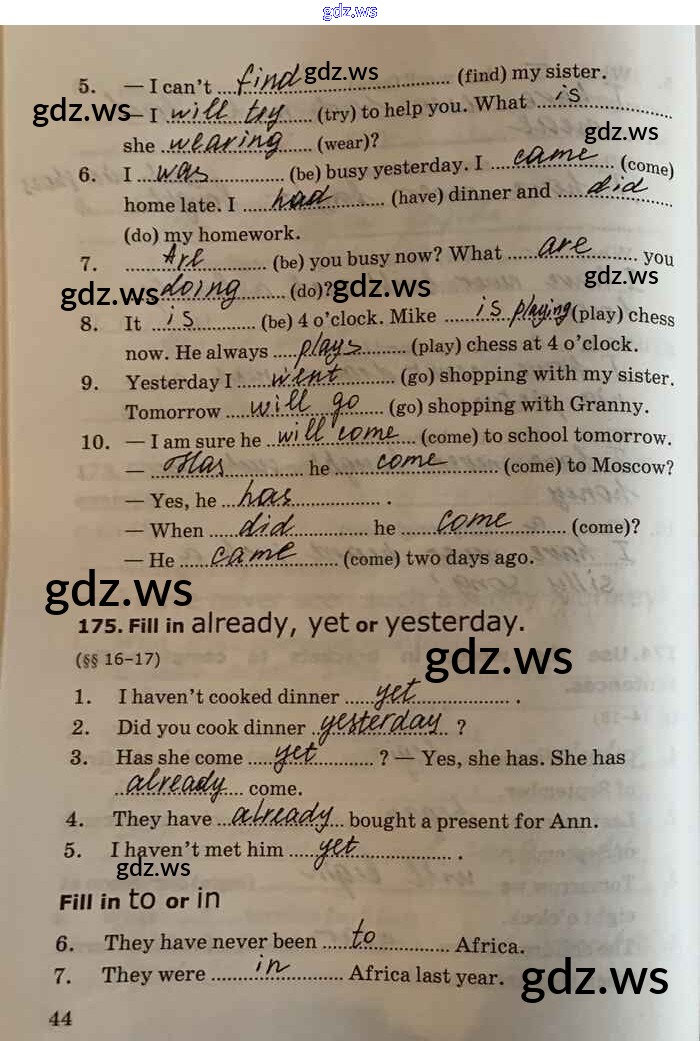 gdz.ws
5. — I can't ...find... (find) my sister.
gdz.ws
— I will try (try) to help you. What ...is...
gdz.ws
gdz.ws
she wearing (wear)?
6. I ...was... (be) busy yesterday. I ...came... (come)
home late. I ...had... (have) dinner and ...did...
(do) my homework.
7. ...Are... (be) you busy now? What ...are... you
gdz.ws
...doing... (do)?
gdz.ws
gdz.ws
8. It ...is... (be) 4 o'clock. Mike ...is playing (play) chess
now. He always ...plays... (play) chess at 4 o'clock.
9. Yesterday I ...went... (go) shopping with my sister.
Tomorrow ...will go... (go) shopping with Granny.
10. — I am sure he ...will come... (come) to school tomorrow.
— ...Has... he ...come... (come) to Moscow?
— Yes, he ...has... .
— When ...did... he ...come... (come)?
— He ...came... (come) two days ago.
gdz.ws
175. Fill in already, yet or yesterday.
(§§ 16–17)
gdz.ws
1. I haven't cooked dinner ...yet... .
2. Did you cook dinner ..yesterday.. ?
3. Has she come ...yet... ? — Yes, she has. She has
..already... come.
4. They have ...already... bought a present for Ann.
5. I haven't met him ...yet... .
gdz.ws
Fill in to or in
6. They have never been ...to... Africa.
7. They were ...in... Africa last year.
gdz.ws
44